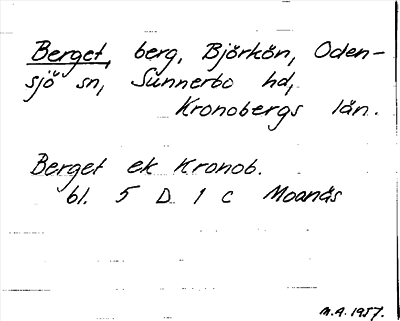 Berget, berg, Björkön, Oden-
sjö sn, Sunnerbo hd,
Kronobergs län.
Berget ek Kronob.
bl. 5 D 1 c Moanäs
M.A. 1957.